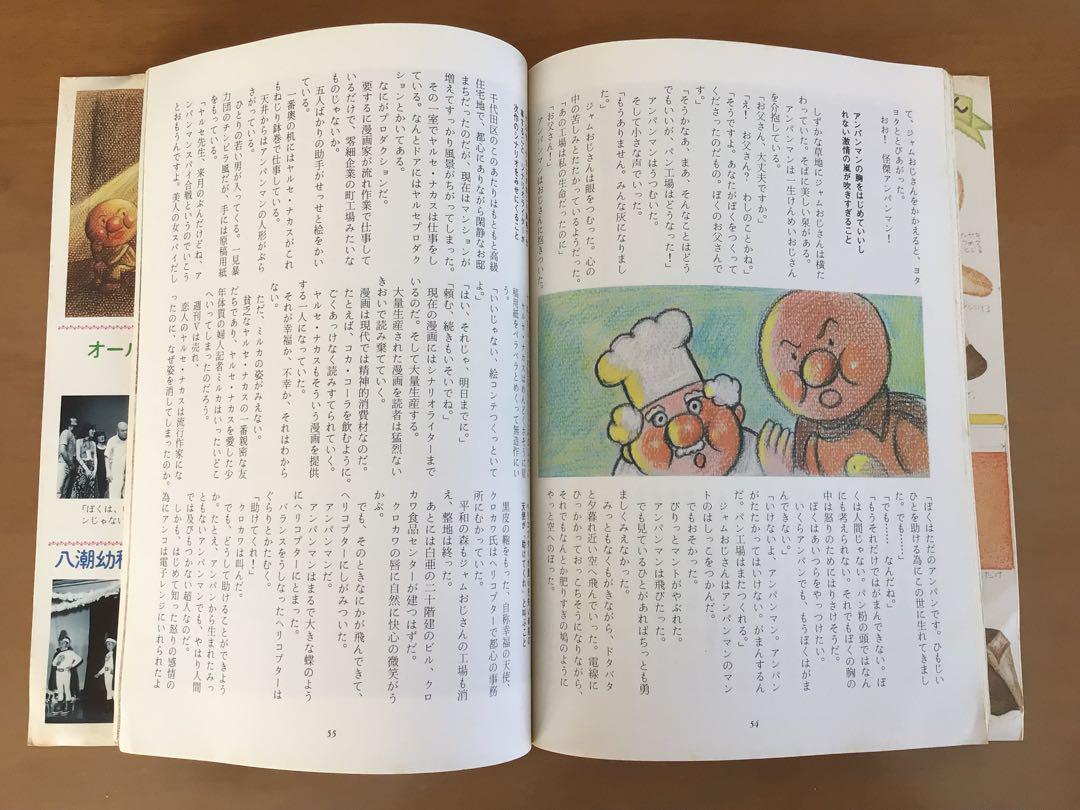 て。ジャムおじさんをかかえると、ヨタ
ヨタととびあがった。
おお！　怪傑アンパンマン！
アンパンマンの胸をはじめていいし
れない激情の嵐が吹きすぎること
しずかな草地にジャムおじさんは横た
わっていた。そばに美しい泉がある。
アンパンマンは一生けんめいおじさん
を介抱している。
「お父さん、大丈夫ですか。」
「え！　お父さん？　わしのことかね。」
「そうですよ。あなたがぼくをつくって
くださったのだもの。ぼくのお父さんで
す。」
「そうかなあ、まあ、そんなことはどう
でもいいが、パン工場はどうなった！」
アンパンマンはうつむいた。
そして小さな声でいった。
「もうありません。みんな灰になりまし
た。」
ジャムおじさんは眼をつむった。心の
中の苦しみとたたかっているようだった。
「あの工場は私の生命だったのに」
「お父さん！」
アンパンマンはおじさんに抱きついた。
「ぼくはただのアンパンです。ひもじい
ひとを助ける為にこの世に生れてきまし
た。でも……。」
「でも……　なんだね。」
「もうそれだけではがまんできない。ぼ
くは人間じゃない。パン粉の頭ではなん
にも考えられない。それでもぼくの胸の
中は怒りのためにはりさけそうだ。
ぼくはあいつらをやっつけたい。
いくらアンパンでも、もうぼくはがま
んできない。」
「いけないよ、アンパンマン。アンパン
がたたかってはいけない。がまんするん
だ。パン工場はまたつくれる。」
ジャムおじさんはアンパンマンのマン
トのはしっこをつかんだ。
でもおそかった。
びりっとマントがやぶれた。
アンパンマンは飛びたった。
でも見ているひとがあればちっとも勇
ましくみえなかった。
みっともなくもがきながら、ドタバタ
と夕暮れ近い空へ飛んでいった。電線に
ひっかかっておっこちそうになりながら、
それでもなんとか肥りすぎの鳩のように
やっと空へのぼった。
54
千代田区のこのあたりはもともと高級
住宅地で、都心にありながら閑静なお邸
まちだったのだが、現在はマンションが
増えてすっかり風景がちがってしまった。
その一室でヤルセ・ナカスは仕事をし
ている。なんとドアにはヤルセプロダク
ションとかいてある。
なにがプロダクションだ。
要するに漫画家が流れ作業で仕事して
いるだけで、零細企業の町工場みたいな
ものじゃないか。
五人ばかりの助手がせっせと絵をかい
ている。
一番奥の机にはヤルセ・ナカスがこれ
もねじり鉢巻で仕事している。
天井からはアンパンマンの人形がぶら
さがっている。
ひとりの若い男が入ってくる。一見暴
力団のチンピラ風だが、手には原稿用紙
をもっている。
「ヤルセ先生、来月のぶんだけどね、ア
ンパンマンスパイ合戦というのでいこう
とおもうんですよ。美人の女スパイだし
稿用紙をペラペラとめくって無造作にい
う。
「いいじゃない、絵コンテつくっといて
よ。」
「はい、それじゃ、明日までに。」
「頼む、続きもいそいでね。」
現在の漫画にはシナリオライターまで
いるのだ。そして大量生産する。
大量生産された漫画を読者は猛烈ない
きおいで読み棄てていく。
漫画は現代では精神的消費材なのだ。
たとえば、コカ・コーラを飲むように。
ごくあっけなく読みすてられていく。
ヤルセ・ナカスもそういう漫画を提供
する一人になっていた。
それが幸福か、不幸か、それはわから
ない。
ただ、ミルカの姿がみえない。
貧乏なヤルセ・ナカスの一番親密な友
だちであり、ヤルセ・ナカスを愛した少
年体質の婦人記者ミルカはいったいどこ
へいってしまったのだろう。
週刊Ｖは売れ、
恋人のヤルセ・ナカスは流行作家にな
ったのに、なぜ姿を消してしまったのか。
黒皮の鞄をもった、自称幸福の天使、
クロカワ氏はヘリコプターで都心の事務
所にむかっていた。
平和の森もジャムおじさんの工場も消
え、整地は終った。
あとには白亜の二十階建のビル、クロ
カワ食品センターが建つはずだ。
クロカワの唇に自然に快心の微笑がう
かぶ。
でも、そのときなにかが飛んできて、
ヘリコプターにしがみついた。
アンパンマン！
アンパンマンはまるで大きな蝶のよう
にヘリコプターにとまった。
バランスをうしなったヘリコプターは
ぐらりとかたむく。
「助けてくれ！」
クロカワは叫んだ。
でも、どうして助けることができよう
か。たとえ、アンパンから生まれたみっ
ともないアンパンマンでも、やはり人間
では及びもつかない超人なのだ。
しかも、はじめて知った怒りの感情の
為にアンコは電子レンジにいれられたよ
55
オール
「ぼくは、
ンじゃない
八潮幼稚